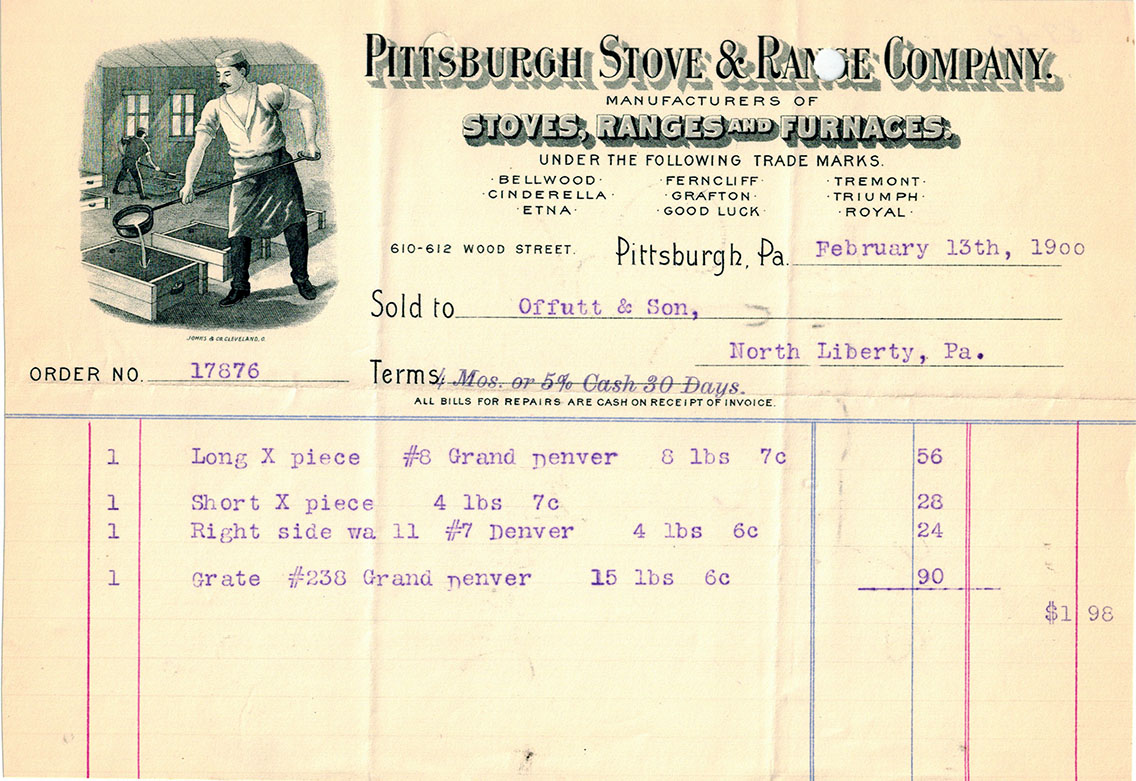 PITTSBURGH STOVE & RANGE COMPANY.
MANUFACTURERS OF
STOVES, RANGES AND FURNACES.
UNDER THE FOLLOWING TRADE MARKS.
·BELLWOOD· ·FERNCLIFF· ·TREMONT·
·CINDERELLA· ·GRAFTON· ·TRIUMPH·
·ETNA· ·GOOD LUCK· ·ROYAL·
610-612 WOOD STREET. Pittsburgh, Pa. February 13th, 1900
Sold to Offutt & Son,
JOHNS & CO. CLEVELAND, O.
North Liberty, Pa.
ORDER NO. 17876 Terms, 4 Mos. or 5% Cash 30 Days.
ALL BILLS FOR REPAIRS ARE CASH ON RECEIPT OF INVOICE.
1 Long X piece #8 Grand Denver 8 lbs 7c 56
1 Short X piece 4 lbs 7c 28
1 Right side wa 11 #7 Denver 4 lbs 6c 24
1 Grate #238 Grand Denver 15 lbs 6c 90
$1 98